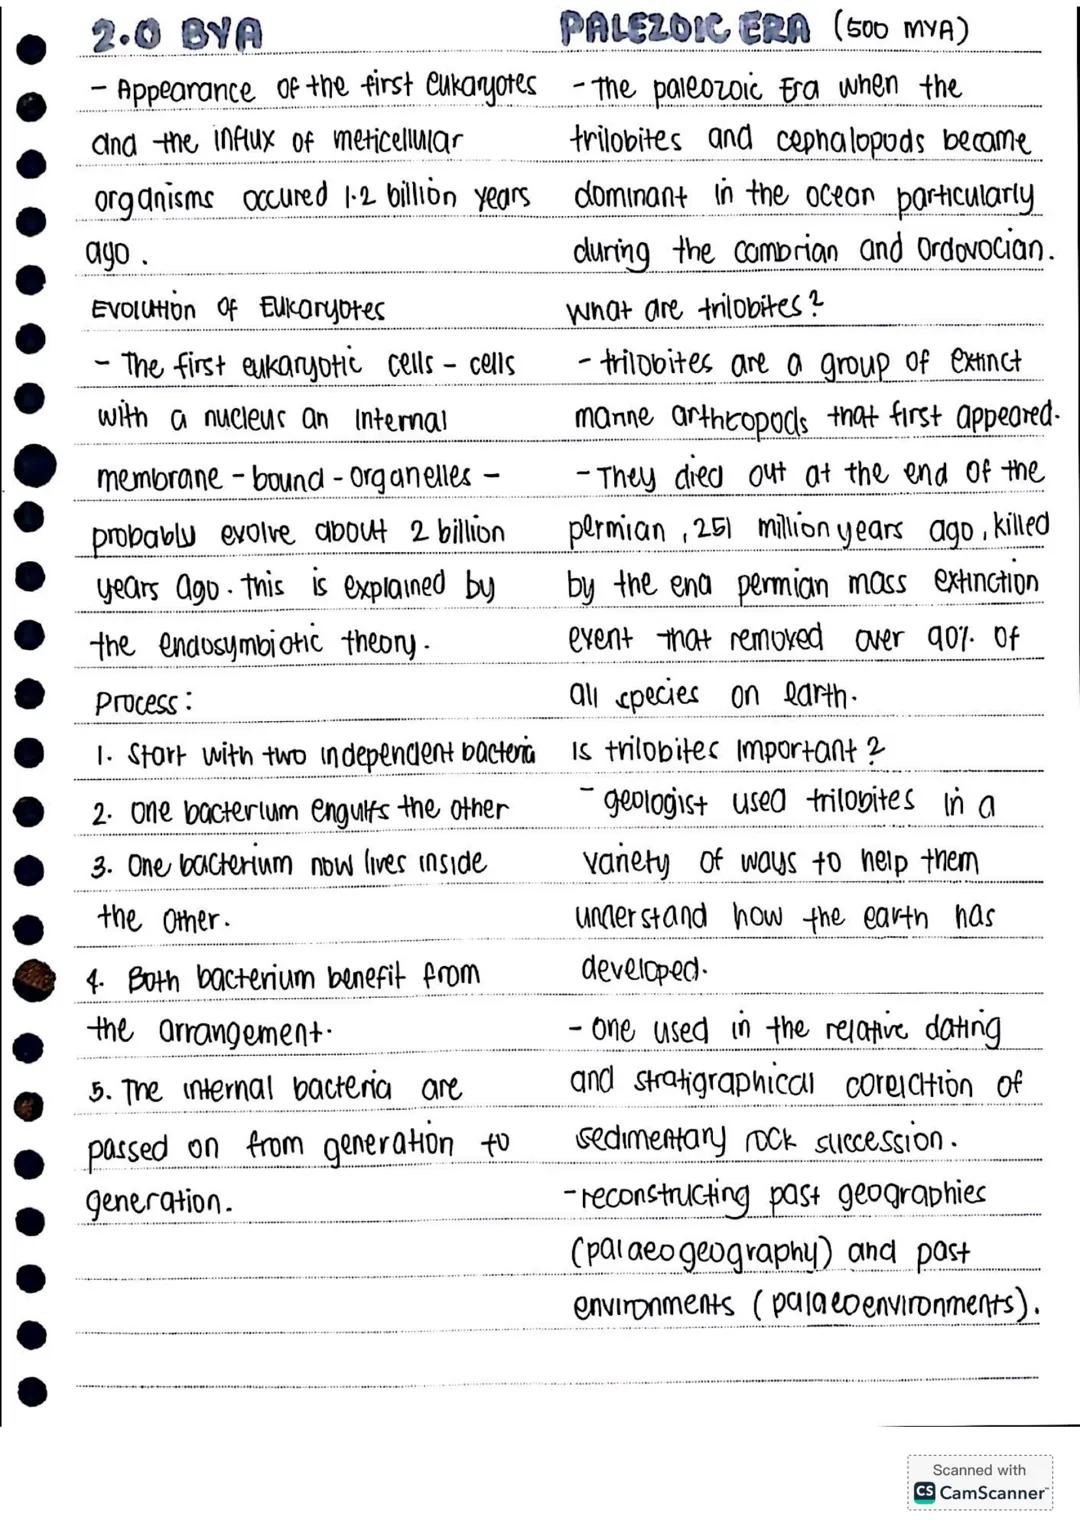 2.0 BYA
- Appearance of the first eukaryotes
and the influx of meticellular
organisms occured 1.2 billion years
ago.
Evolution of Eukaryotes
- The first eukaryotic cells - cells
with a nucleus an internal
membrane - bound - organelles -
probably evolve about 2 billion
years ago. this is explained by
the endosymbiotic theory.
Process:
1. Start with two independent bacteria
2. One bacterium engulfs the other
3. One bacterium now lives inside
the other.
4. Both bacterium benefit from
the arrangement.
5. The internal bacteria are
passed on from generation to
generation.
PALEZOIC ERA (500 MYA)
- The paleozoic Era when the
trilobites and cephalopods became
dominant in the ocean particularly
during the cambrian and Ordovocian.
What are trilobites?
- trilobites are a group of extinct
marine arthropods that first appeared.
- They died out at the end of the
permian, 251 million years ago, killed
by the end permian mass extinction
event that removed over 90% of
all species on Earth.
Is trilobites Important?
- geologist used trilobites in a
variety of ways to help them
understand how the earth has
developed.
- One used in the relative dating
and stratigraphical corelation of
sedimentary rock succession.
- reconstructing past geographies
(palaeogeography) and past
environments (palaeoenvironments).
Scanned with
CS CamScanner